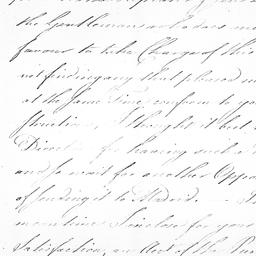 the Gentleman who does me
favour to take Charge of this
not finding any that pleased m
at the same time conform to yo
structions, I thought it best
Direct for having such a
and so wait for another Oppo
of sending it to Madrid.
mean time I inclose for your
Satisfaction, an Acct of the Pur